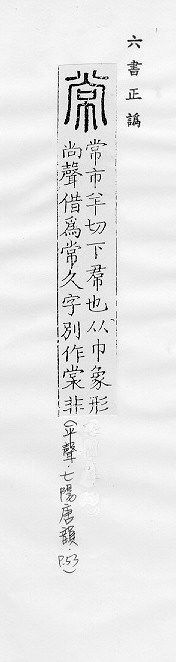 六書正譌
常
常市羊切下帬也从巾象形
尚聲借爲常久字別作裳非
(平聲·七陽唐韻·P.53)